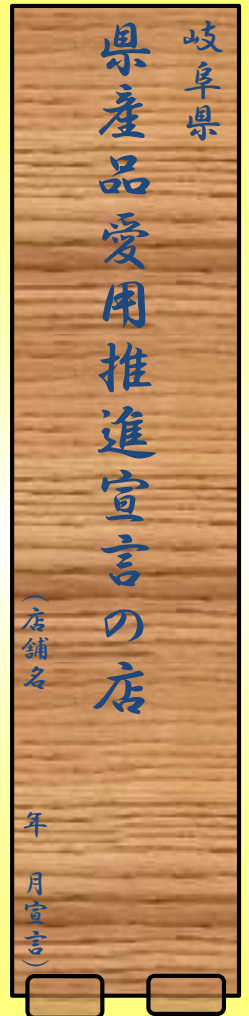 岐阜県
県産品愛用推進宣言の店
(店舗名　　　年　月宣言)